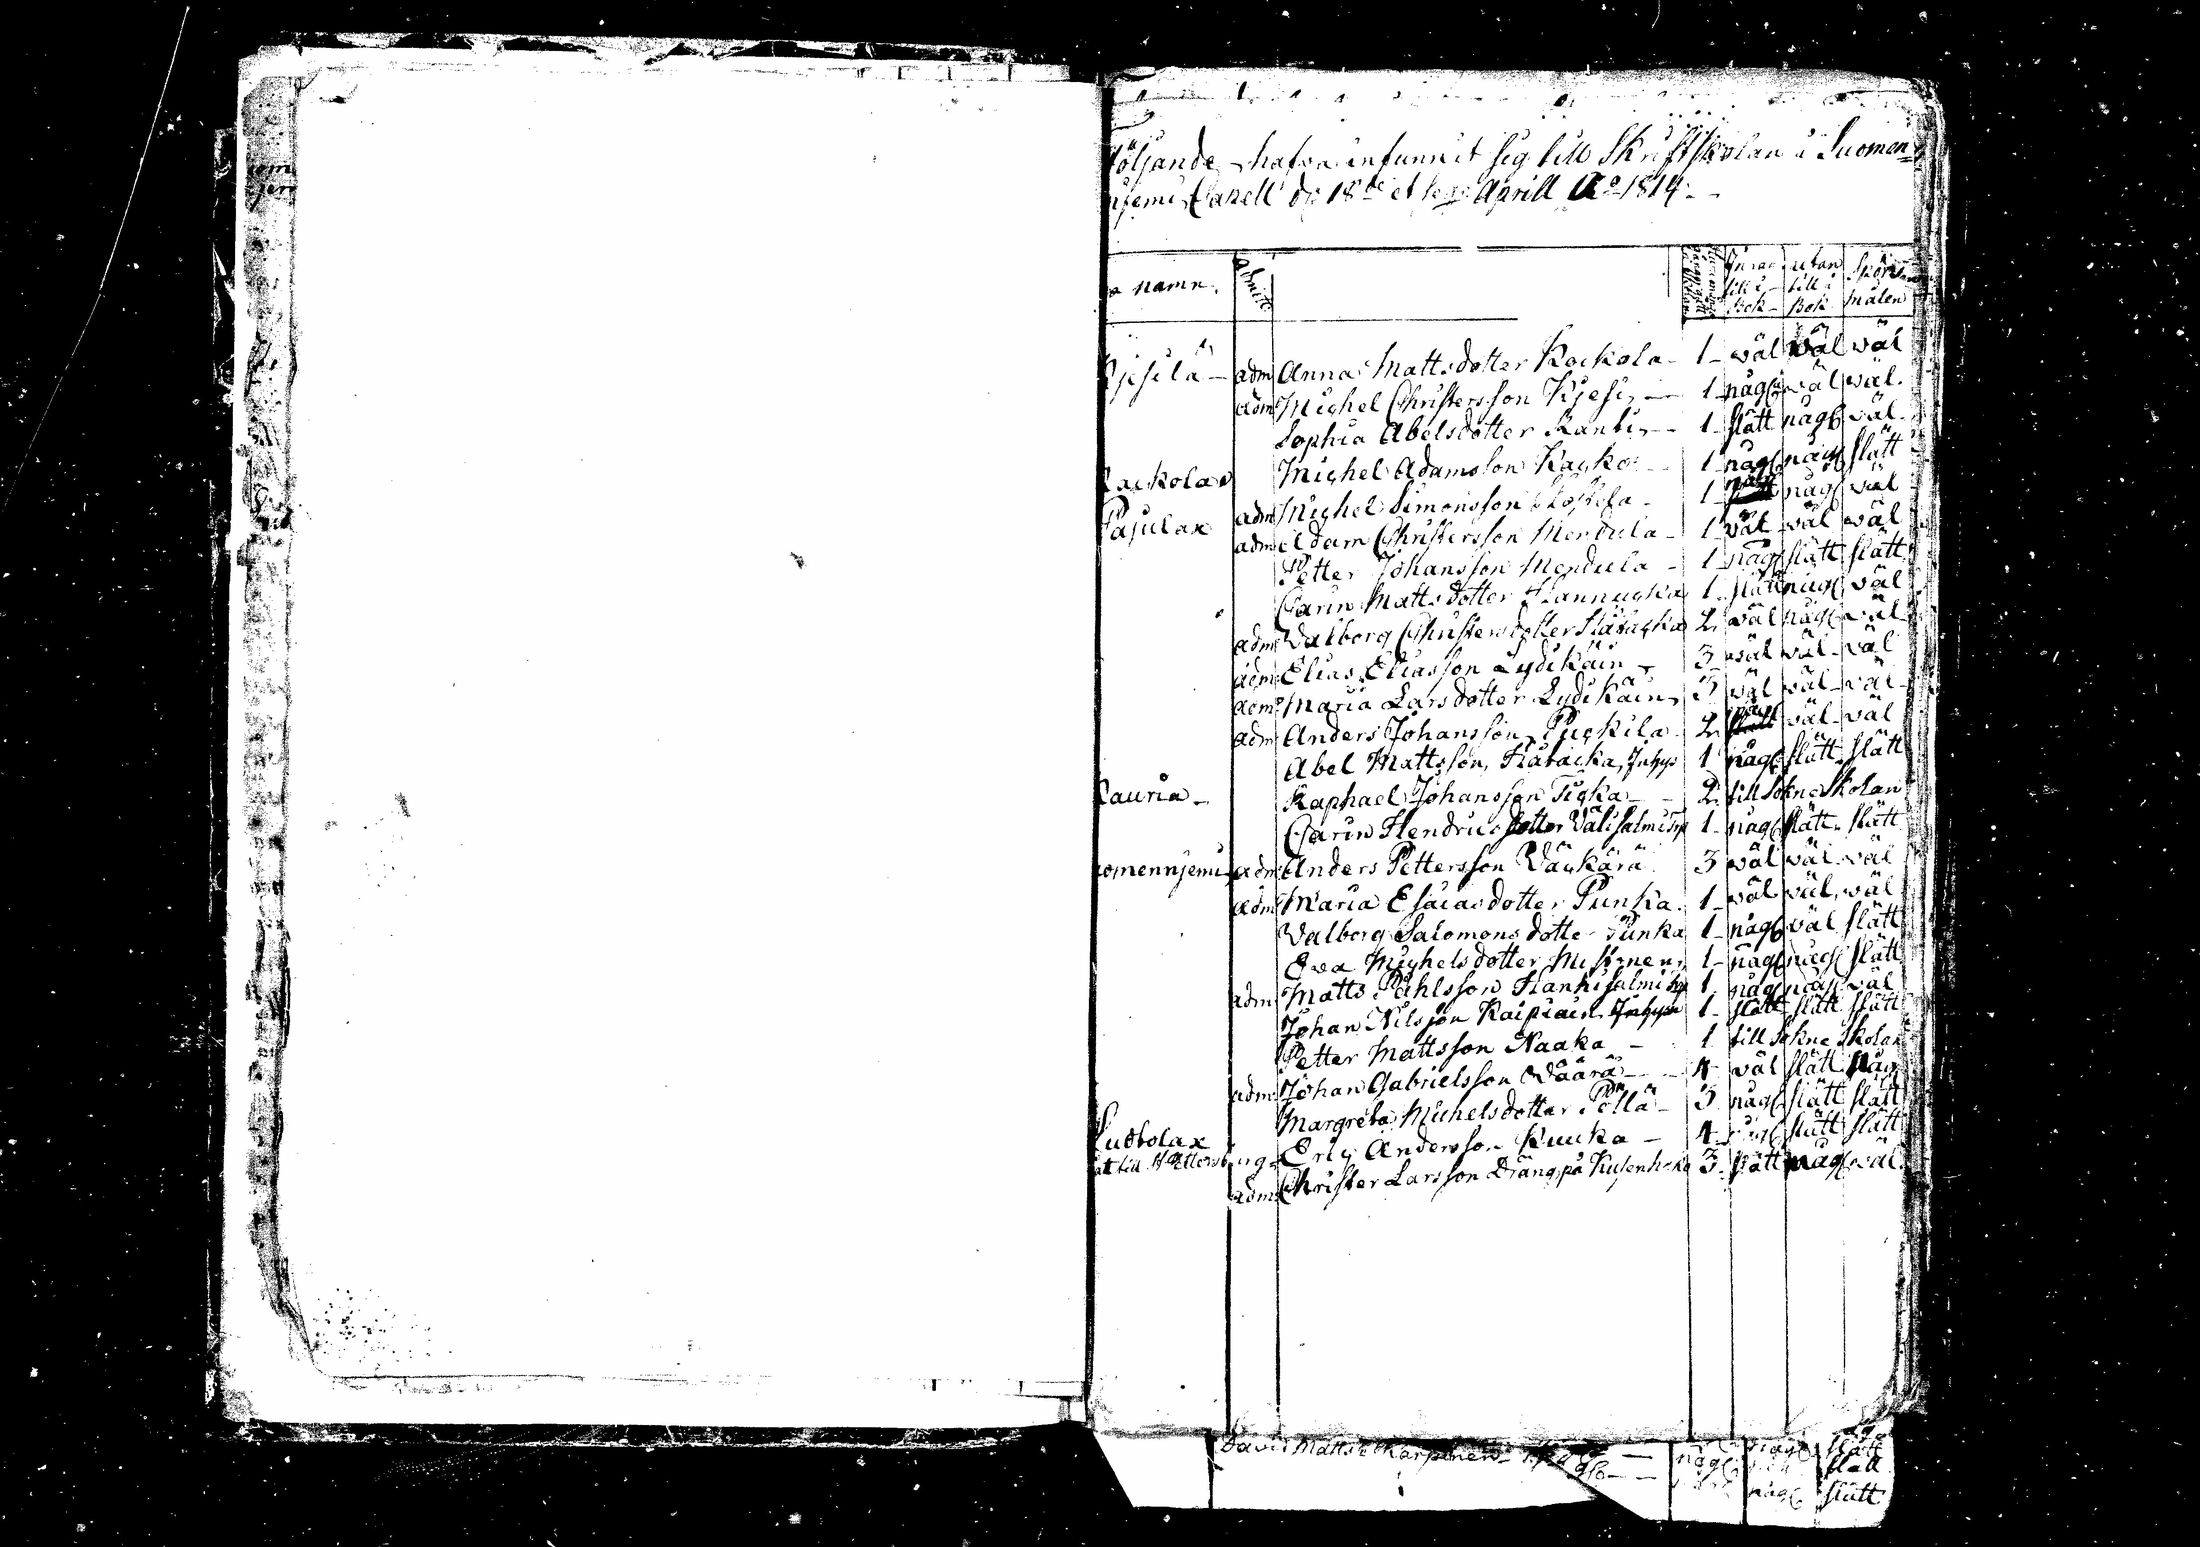 Följande hafva infunnit sig till Skriftskolan i Suomen-
njemi Capell d. 18de et seqv. Aprill Ao 1814.
namn. Admitt. Innan till i Bok - utan till i Bok Spörs målen
Kjesilä - adm Anna Mattsdotter Kockola - 1 - väl väl väl
adm Michel Christersson Kjesi, - 1 - någl väl väl.
Sophia Abelsdotter Kanti, - 1 - slätt någl väl.
Kackolax Michel Adamsson Kacko - 1 - någl någl slätt
Pajulax adm Michel Simonsson Kossila - 1 - någl väl
adm Adam Christersson Mendula - 1 väl - väl väl
Petter Johansson Mendula - 1 någl slätt slätt
Carin Mattsdotter Hannucka 1 - slätt någl väl
adm Valborg Christersdotter Hätacka 2. väl någl väl
adm Elias Eliasson Lydikäin, 3 - väl väl - väl
adm Maria Larsdotter Lydikäin, 3 väl väl - väl -
adm Anders Johansson Puckila - 2. slätt väl - väl
Abel Mattsson, Hätacka, Inhys 1 någl slätt slätt
Kauria - Raphael Johansson Ticka - - 2. till Sokne Skolan
Carin Hendricsdotter Välisalmi Trp 1 - någl slätt slätt
uomennjemi, adm Anders Pettersson Väckärä 3 väl väl väl
adm Maria Esaiasdotter Punka. 1 - väl väl, väl
Valborg Salomonsdotter Punka 1 - någl väl slätt
Eva Michelsdotter 1 - någl någl slätt
adm Matts Påhlsson Hankisalmi trp 1 någl någl väl
Johan Nilsson Kaipiain Inhys 1 - slätt slätt slätt
Petter Mattsson Naaka - 1 till Sokne Skolan
adm Johan Gabrielsson Väärä - - 4 väl slätt någl
Margreta Michelsdotter Pöllä - 3 någl slätt slätt
Ludtolax Eric Andersson Kuuka - 4 - någl slätt slätt
till St Pettersburg adm Christer Larsson Dräng på Kusenhoka 3 - slätt någl väl.
David Matts Karpinen - någl någl slätt
slätt
någl slätt